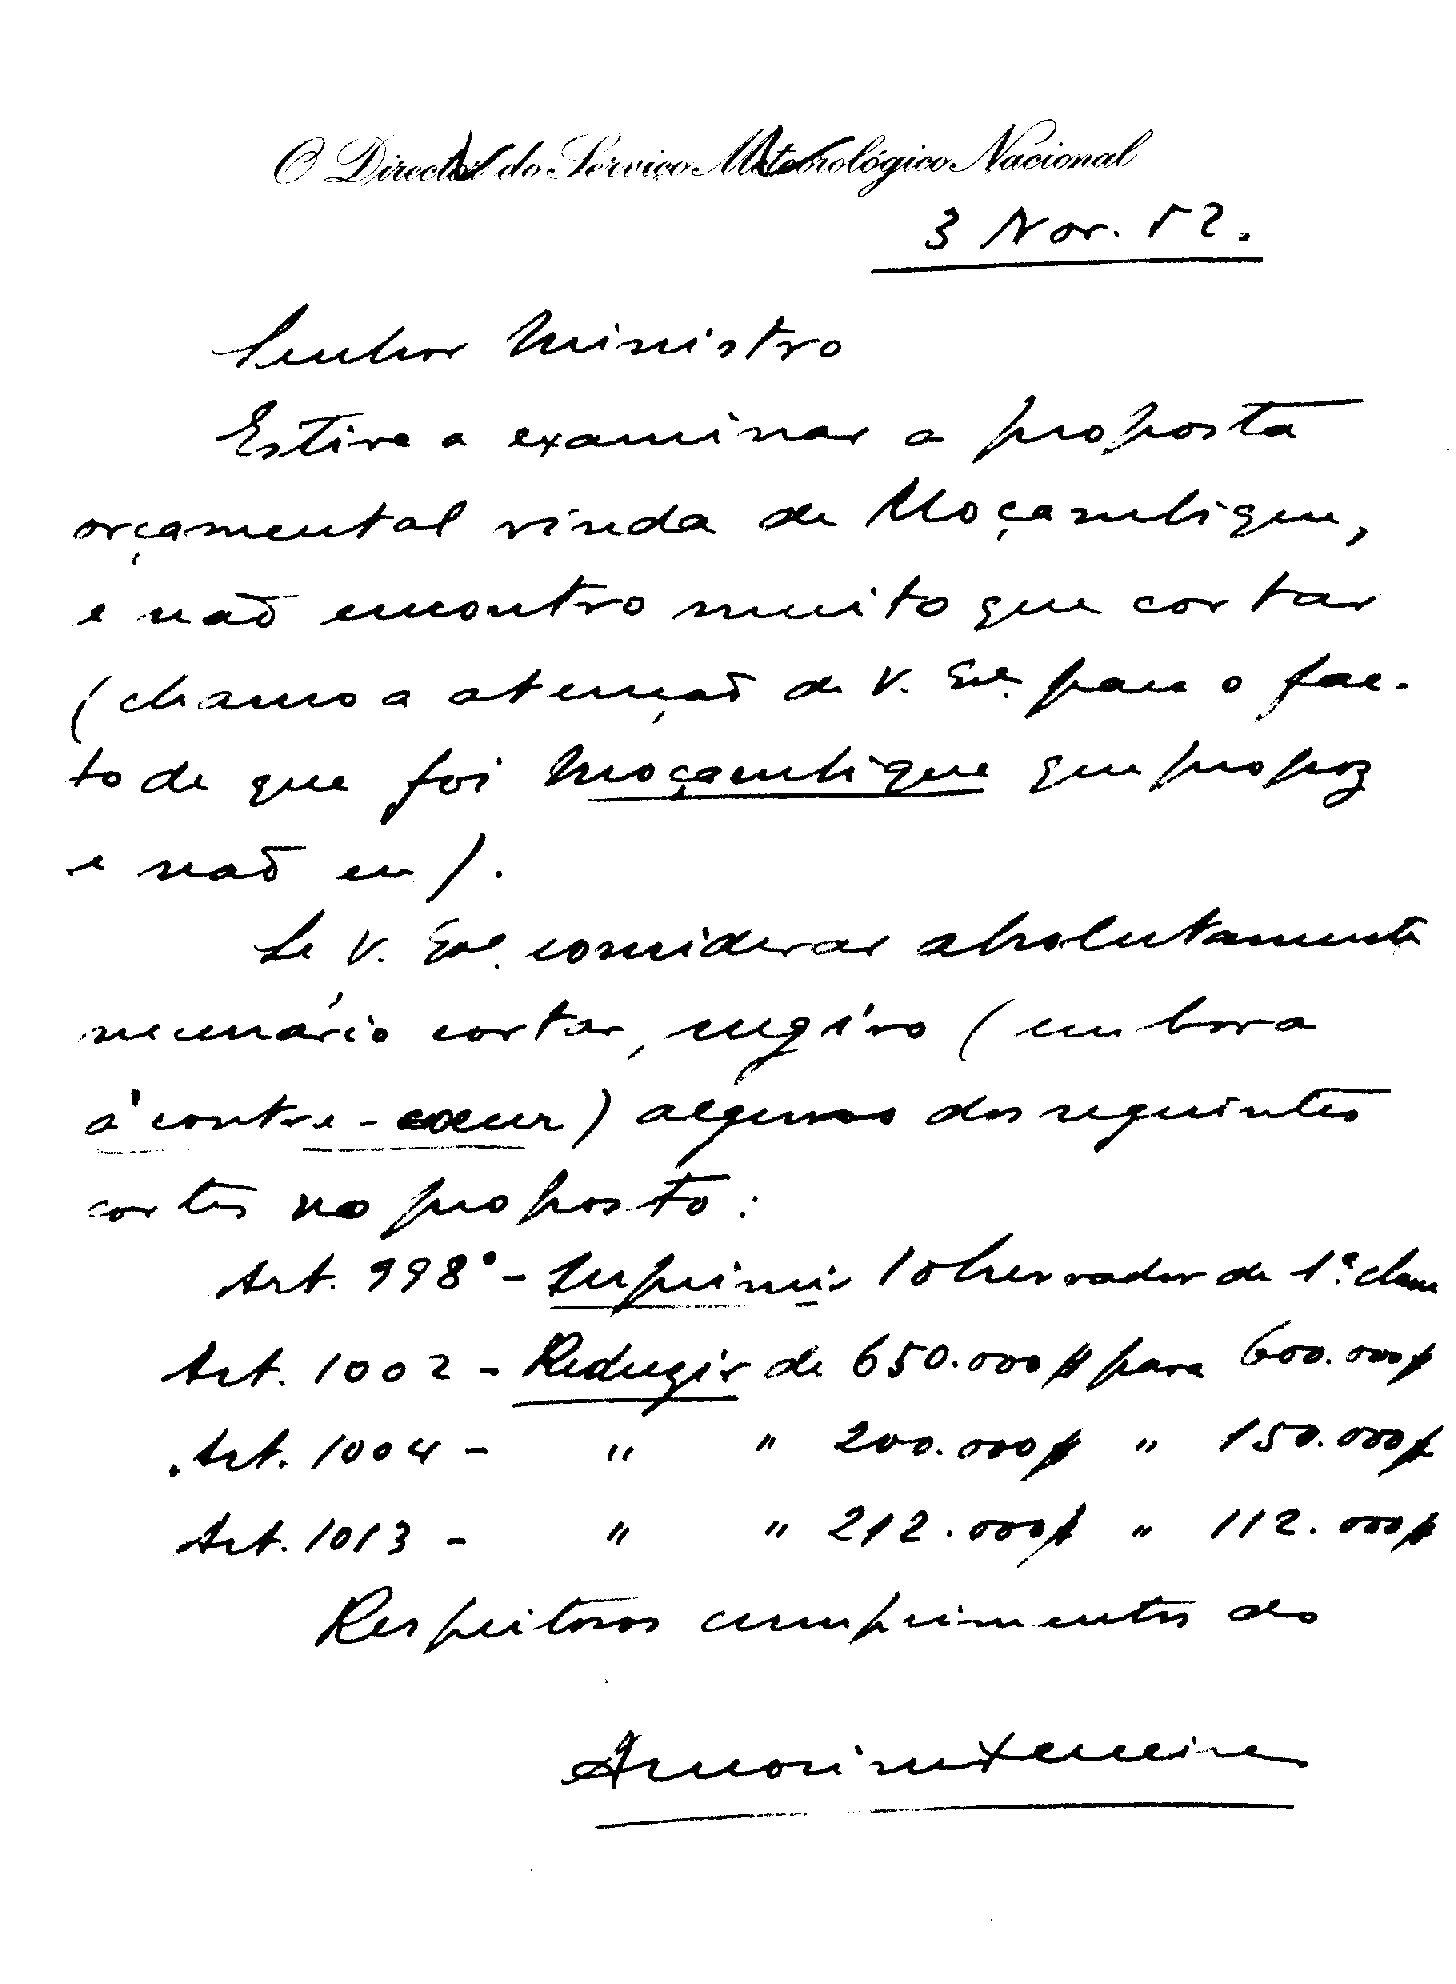 O Director do Serviço Meteorológico Nacional
3 Nov. 52.
Senhor Ministro
Estive a examinar a proposta
orçamental vinda de Moçambique,
e não encontro muito que cortar
(chamo a atenção de V. Exª. para o fac-
to de que foi Moçambique que propoz
e não eu).
Se V. Exª. considerar absolutamente
necessário cortar, sugiro (embora
à contre-coeur) alguns dos seguintes
cortes no proposto:
Art. 998º - Suprimir 1 observador de 1ª. classe
Art. 1002 - Reduzir de 650.000$ para 600.000$
Art. 1004 - " " 200.000$ " 150.000$
Art. 1013 - " " 212.000$ " 112.000$
Respeitosos cumprimentos do
Amorim Ferreira